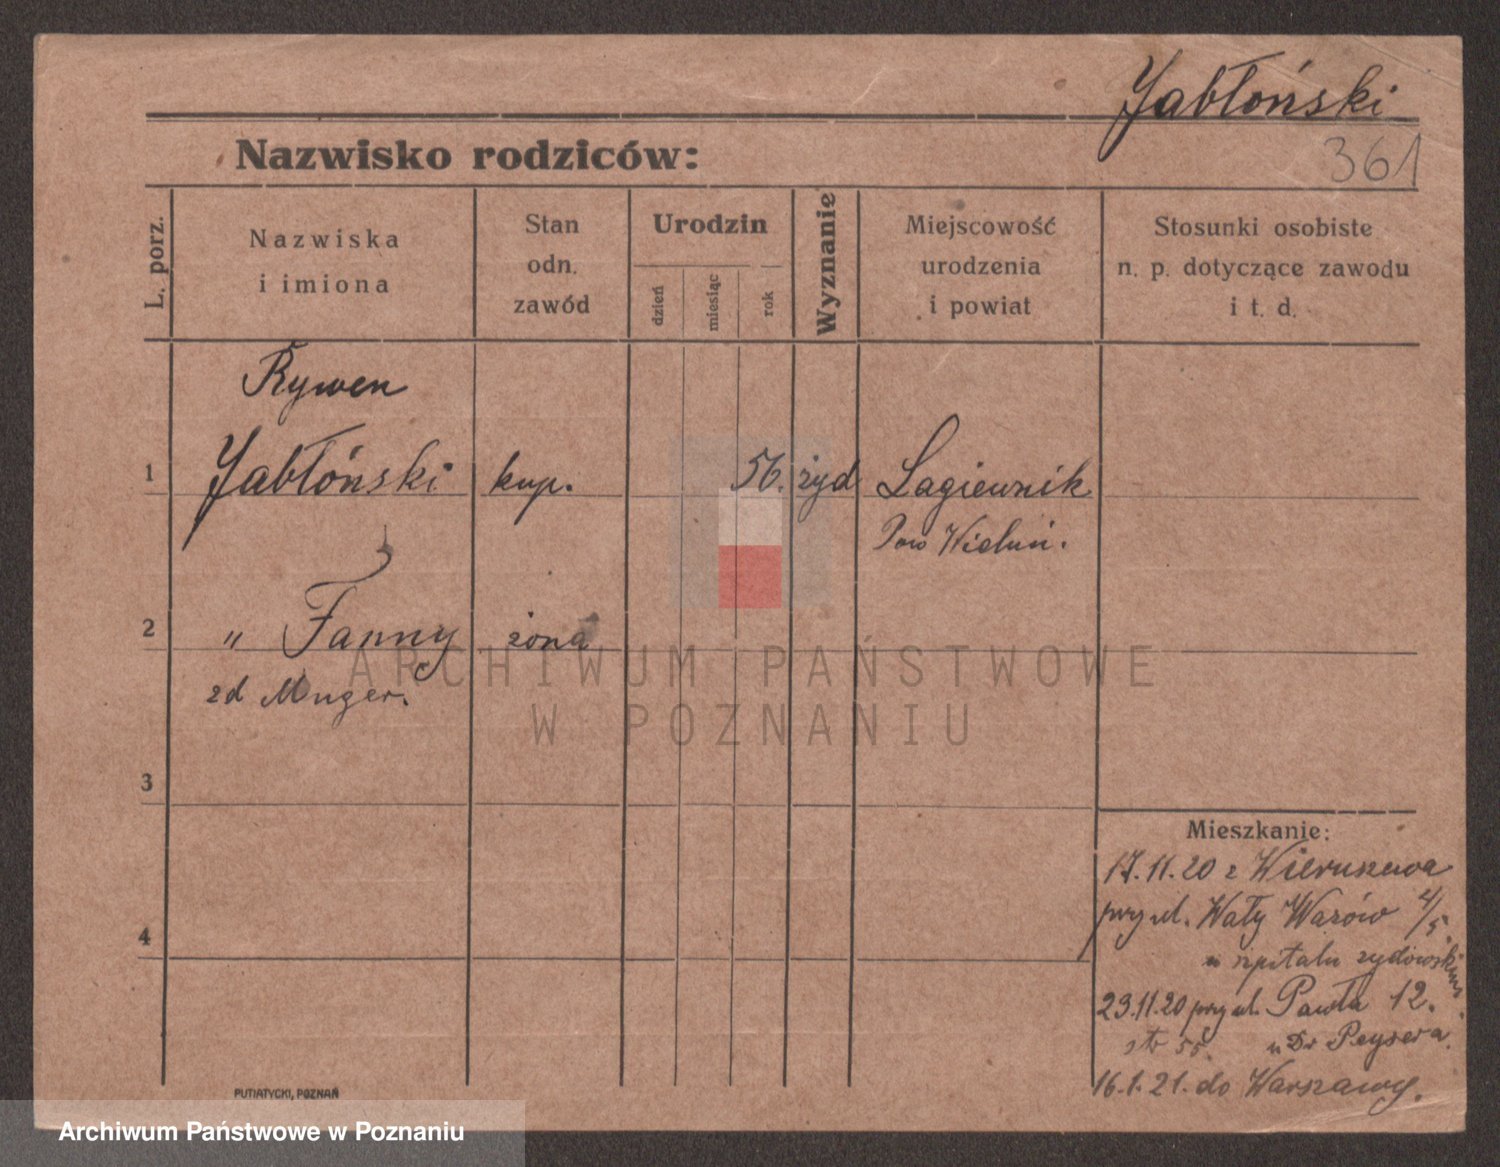 Jabłoński
361
Nazwisko rodziców:
L. porz.
Nazwiska
i imiona
Stan
odn.
zawód
Urodzin
dzień
miesiąc
rok
Wyznanie
Miejscowość
urodzenia
i powiat
Stosunki osobiste
n. p. dotyczące zawodu
i t. d.
Rywen
1 Jabłóński kup. 56. żyd Lagiewnik
Pow Wieluń.
2 " Fanny żona
zd Munger.
3
4
Mieszkanie:
17.11.20 z Wieruszewa
przy ul. Wały Wazów 4/5.
u szpitalu żydowskim.
23.11.20 przy ul. Pawła 12.
str 55. u Dr Peysera.
16.1.21. do Warszawy.
PUTIATYCKI, POZNAŃ
ARCHIWUM PAŃSTWOWE
W POZNANIU
Archiwum Państwowe w Poznaniu